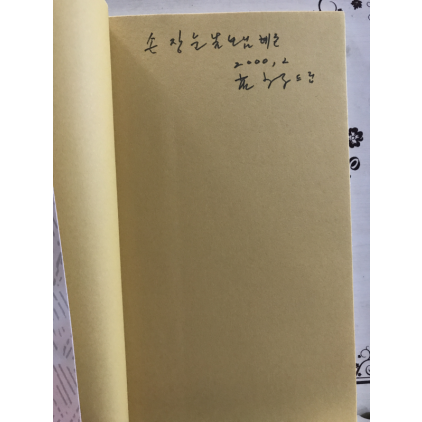 손 장순 선생님 혜존
2000, 2
드림